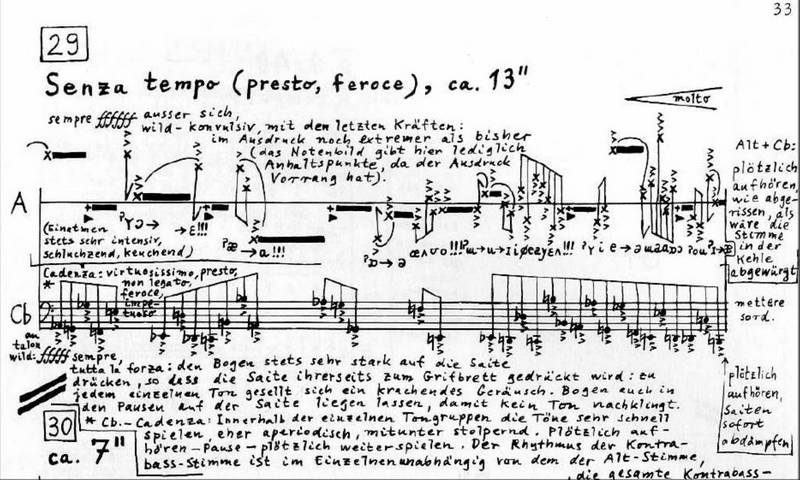 33
29
Senza tempo (presto, feroce), ca. 13"
molto
sempre ffffff ausser sich,
wild-konvulsiv, mit den letzten Kräften:
im Ausdruck noch extremer als bisher
(das Notenbild gibt hier lediglich
Anhaltspunkte, da der Ausdruck
Vorrang hat).
Alt + Cb:
plötzlich
aufhören,
wie abge-
rissen, als
wäre die
Stimme
in der
Kehle
abgewürgt
A
(Einatmen
stets sehr intensiv,
schluchzend, keuchend)
Cadenza: virtuosissimo, presto,
* non legato,
feroce,
impe-
tuoso
Cb
mettere
sord.
au
talon
wild: ffffff sempre,
tutta la forza: den Bogen stets sehr stark auf die Saite
drücken, so dass die Saite ihrerseits zum Griffbrett gedrückt wird: zu
jedem einzelnen Ton gesellt sich ein krachendes Geräusch. Bogen auch in
den Pausen auf der Saite liegen lassen, damit kein Ton nachklingt.
plötzlich
aufhören,
Saiten
sofort
abdämpfen
30
ca. 7"
* Cb.-Cadenza: Innerhalb der einzelnen Tongruppen die Töne sehr schnell
spielen, eher aperiodisch, mitunter stolpernd. Plötzlich auf-
hören-Pause-plötzlich weiterspielen. Der Rhythmus der Kontra-
bass-Stimme ist im Einzelnen unabhängig von dem der Alt-Stimme,
die gesamte Kontrabass-